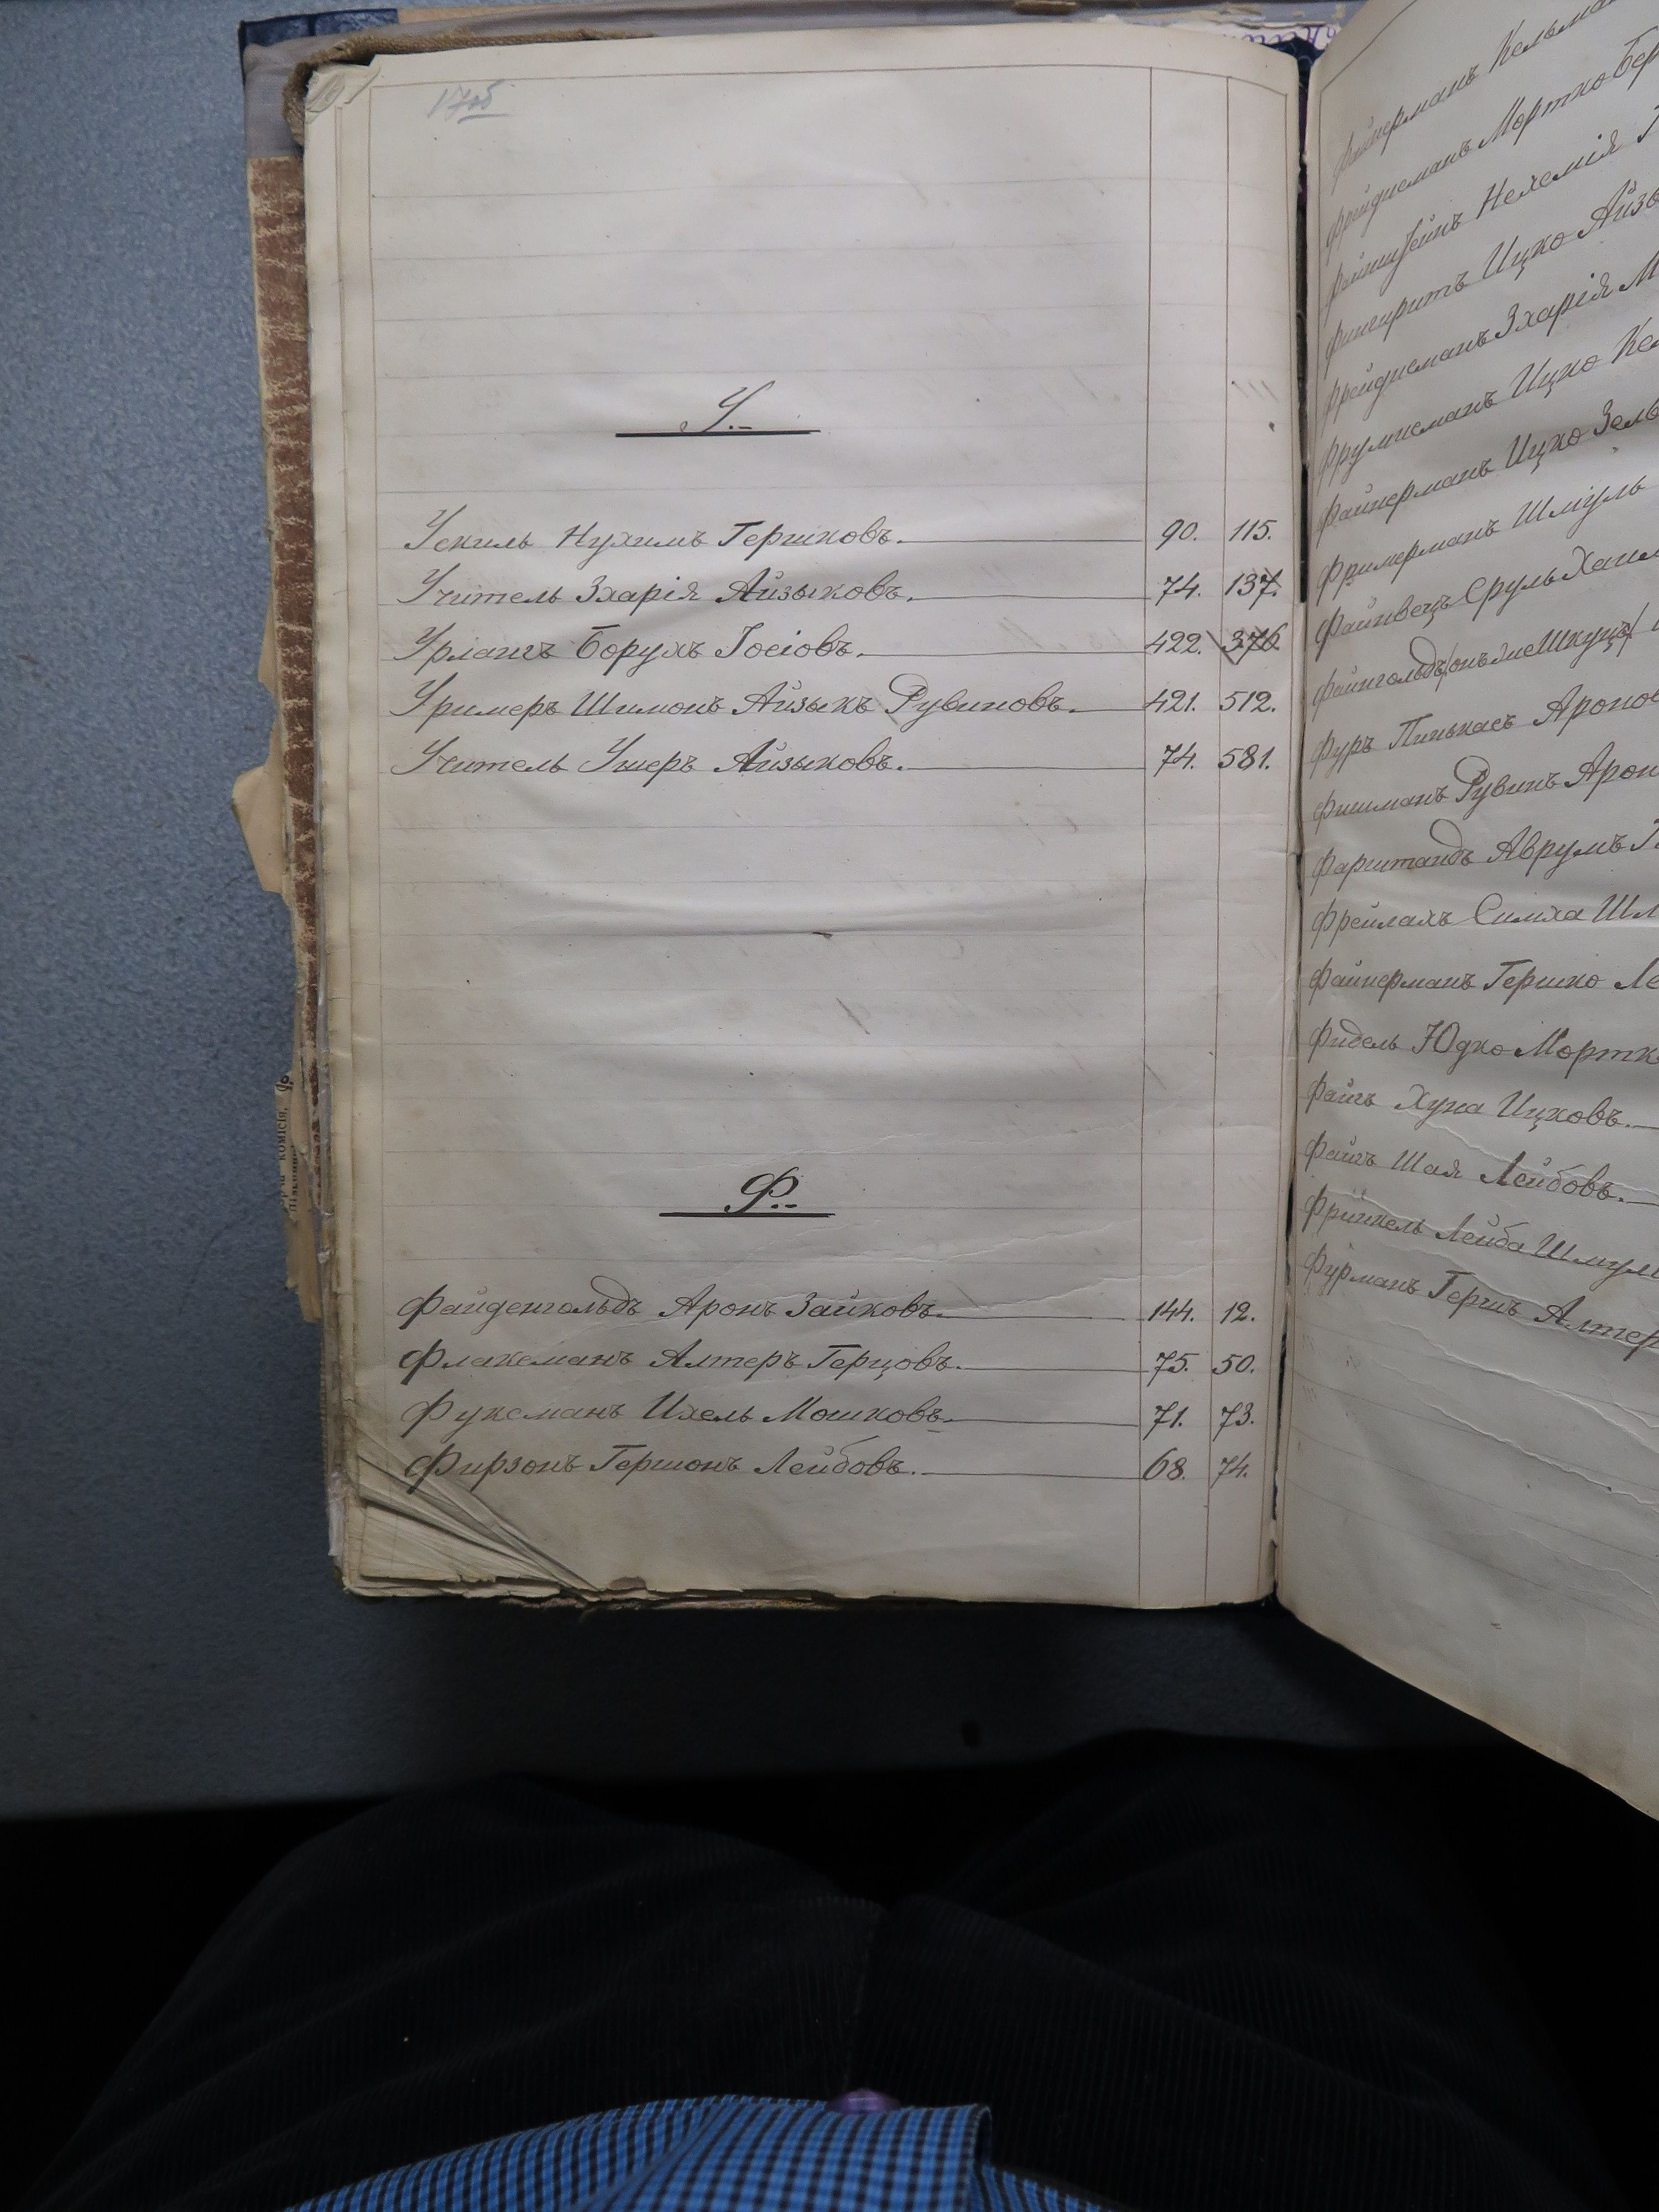 17об
У.-
Ускиль Нухимъ Гершковъ. 90. 115.
Учитель Зхарія Айзыковъ. 74. 137.
Урлангъ Борухъ Іосіовъ. 422. 376
Уримеръ Шимонъ Айзыкъ Рувиновъ. 421. 512.
Учитель Ушеръ Айзыковъ. 74. 581.
Ф.-
Файденгольдъ Аронъ Зайковъ. 144. 12.
Флаксманъ Алтеръ Герцовъ. 75. 50.
Фуксманъ Ихель Мошковъ. 71. 73.
Фирзонъ Гершонъ Лейбовъ. 68. 74.
Файнерманъ
Фрейдисманъ Мортко
Нехемія
Фингиритъ Ицко
Фрейдисманъ Зхарія
Фрумисманъ Ицко
Файнерманъ Ицко
Фримерманъ Шмуль
Файнвецъ Сруль
Файнгольдъ
Фуръ Пинькасъ
Фишманъ Рувинъ
Фарштандъ Аврумъ
Фрейлахъ Симха
Файнерманъ Гершко
Фидель Юдко
Файгъ Хуна Ицковъ.
Файгъ Шая Лейбовъ.
Лейба
Фурманъ Гершъ
комісія.